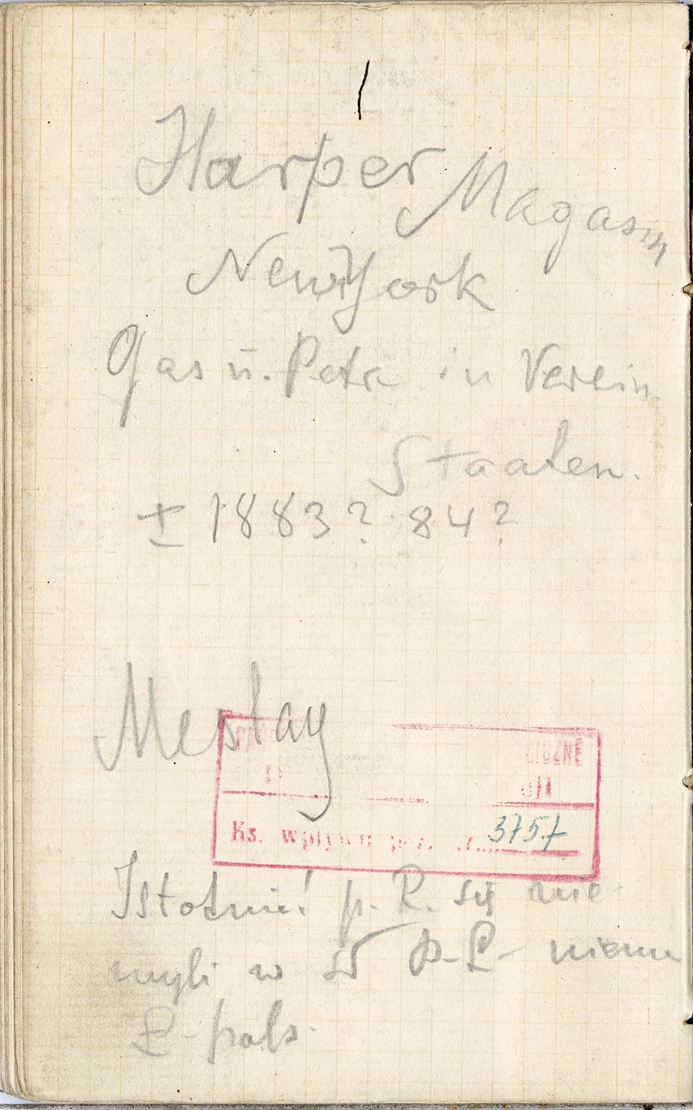 Harper Magasin
New York
Gas u. Petr in Verein
Staaten.
± 1883? 84?
Meslay
ICZNE
Ks. wpływu poz. 3757
Istotnie! p. R. się nie-
myli w niema